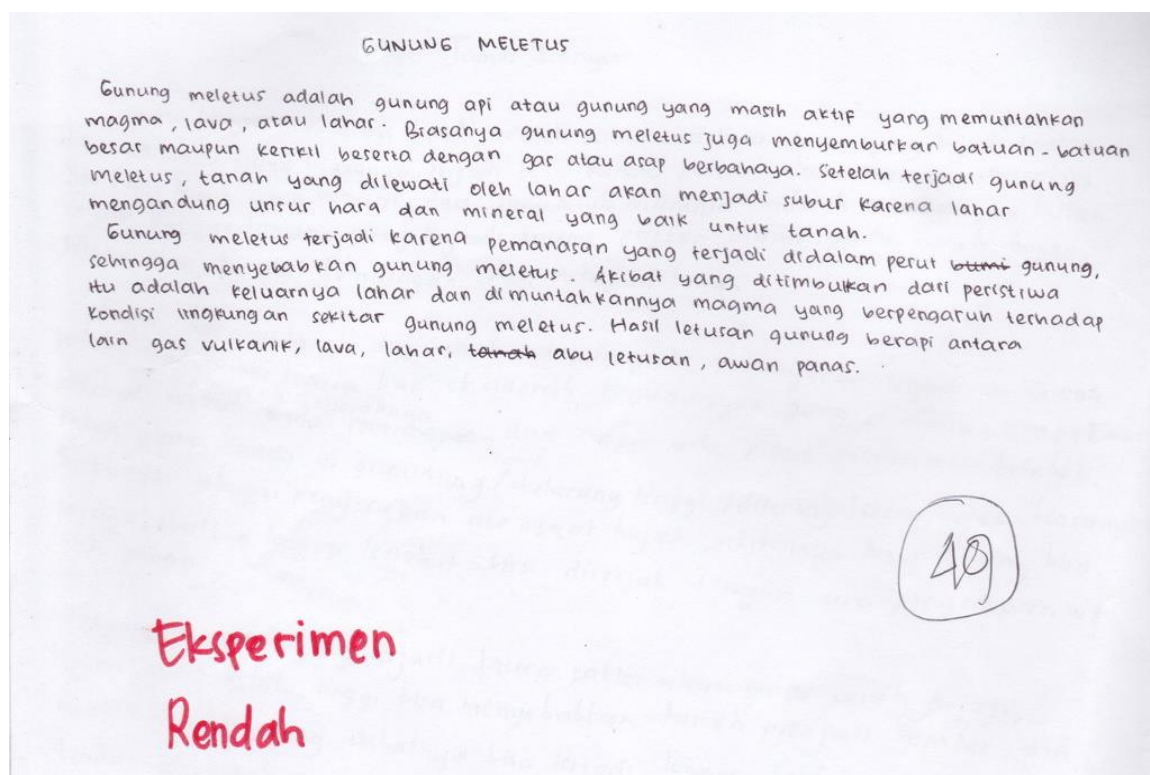 GUNUNG MELETUS
Gunung meletus adalah gunung api atau gunung yang masih aktif yang memuntahkan
magma, lava, atau lahar. Biasanya gunung meletus juga menyemburkan batuan-batuan
besar maupun kerikil beserta dengan gas atau asap berbahaya. Setelah terjadi gunung
meletus, tanah yang dilewati oleh lahar akan menjadi subur karena lahar
mengandung unsur hara dan mineral yang baik untuk tanah.
Gunung meletus terjadi karena pemanasan yang terjadi didalam perut bumi gunung,
sehingga menyebabkan gunung meletus. Akibat yang ditimbulkan dari peristiwa
itu adalah keluarnya lahar dan dimuntahkannya magma yang berpengaruh terhadap
kondisi lingkungan sekitar gunung meletus. Hasil letusan gunung berapi antara
lain gas vulkanik, lava, lahar, tanah abu letusan, awan panas.
49
Eksperimen
Rendah